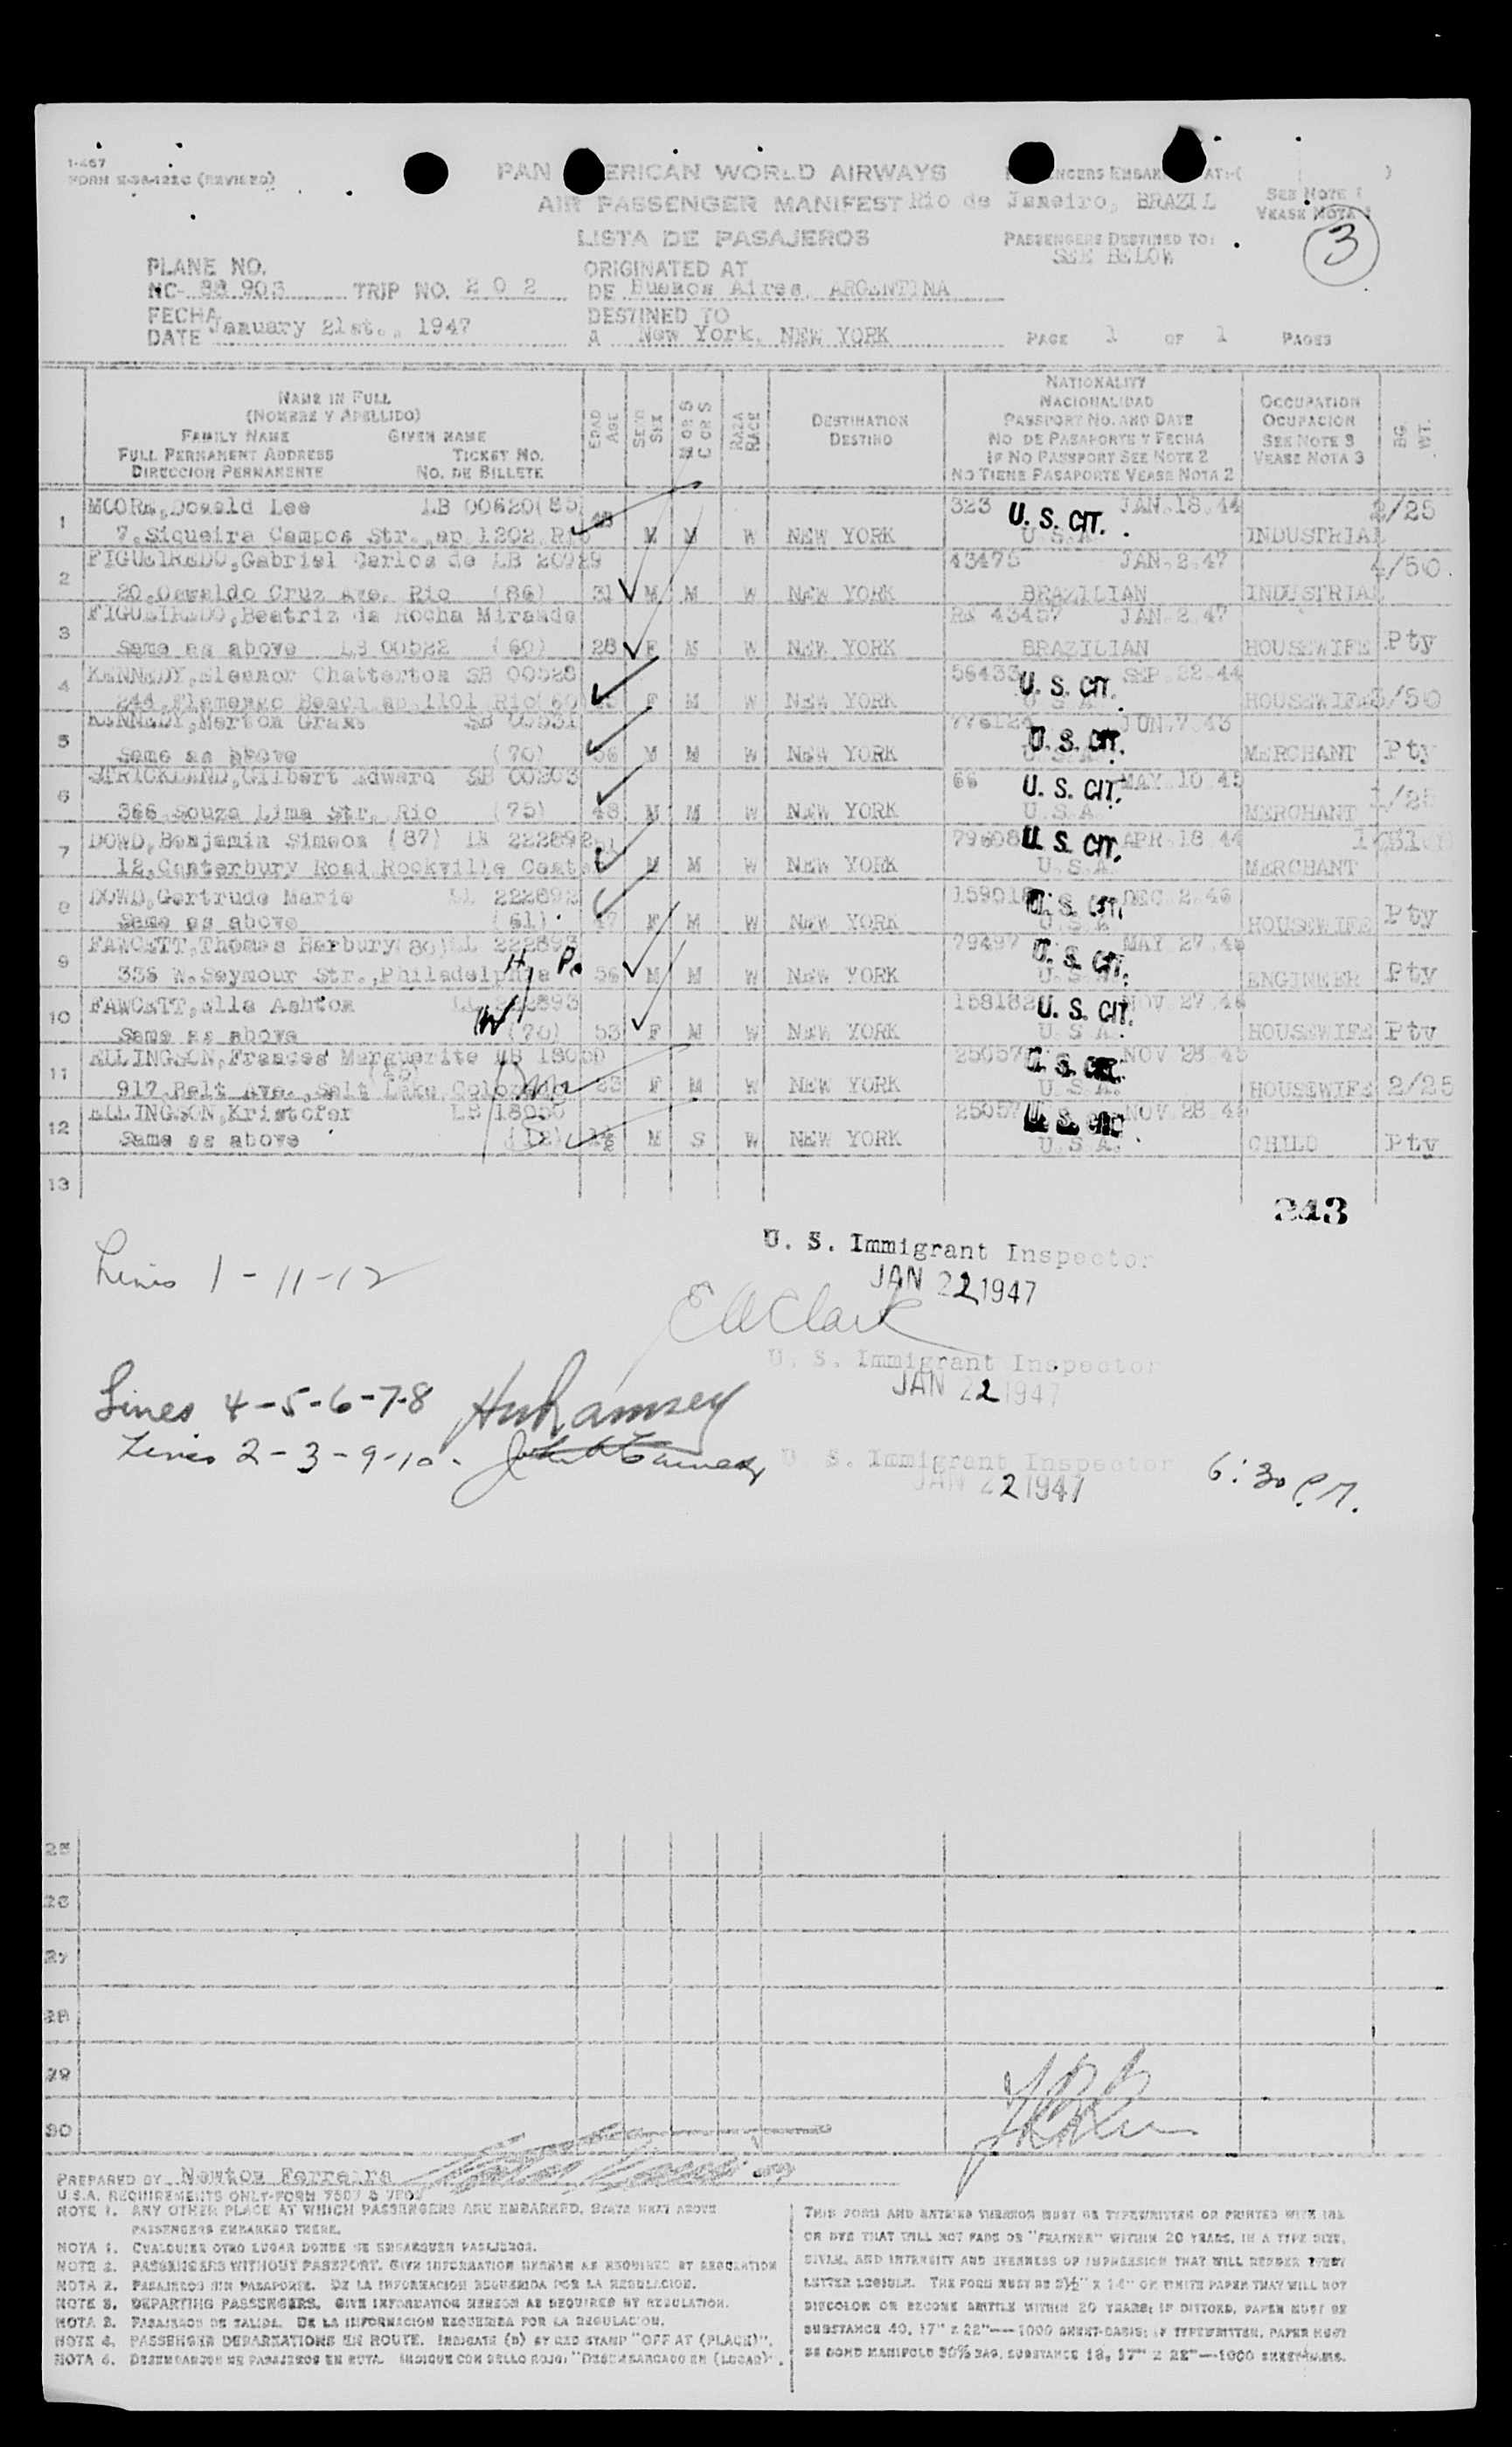 1-467
FORM (REVISED)
PAN AMERICAN WORLD AIRWAYS
AIR PASSENGER MANIFEST Rio de Janeiro, BRAZIL
LISTA DE PASAJEROS
SEE NOTE 1
VEASE NOTA 1
PASSENGERS DESTINED TO:
SEE BELOW
3
PLANE NO.
NC- 88 903 TRIP NO. 2 0 2
ORIGINATED AT
DE Buenos Aires, ARGENTINA
FECHA
DATE January 21st., 1947
DESTINED TO
A New York, NEW YORK
PAGE 1 OF 1 PAGES
NAME IN FULL
(NOMBRE Y APELLIDO)
FAMILY NAME GIVEN NAME
FULL PERMANENT ADDRESS TICKET NO.
DIRECCION PERMANENTE NO. DE BILLETE
EDAD AGE
SEXO SEX
M OR S
C OR S
RAZA RACE
DESTINATION
DESTINO
NATIONALITY
NACIONALIDAD
PASSPORT NO. AND DATE
NO DE PASAPORTE Y FECHA
IF NO PASSPORT SEE NOTE 2
NO TIENE PASAPORTE VEASE NOTA 2
OCCUPATION
OCUPACION
SEE NOTE 3
VEASE NOTA 3
BG WT.
1 MOORE, Donald Lee LB 00620 (85) 323 JAN. 18. 44 2/25
7, Siqueira Campos Str., ap 1202 Rio M M W NEW YORK U. S. CIT. U.S.A. INDUSTRIAL
2 FIGUEIREDO, Gabriel Carlos de LB 20729 43475 JAN. 2. 47 4/50
20, Oswaldo Cruz Ave. Rio (86) 31 M M W NEW YORK BRAZILIAN INDUSTRIAL
3 FIGUEIREDO, Beatriz da Rocha Miranda 43457 JAN 2. 47
Same as above LB 00522 (60) 28 F M W NEW YORK BRAZILIAN HOUSEWIFE Pty
4 KENNEDY, Eleanor Chatterton SB 00528 56433 SEP. 22. 44
244, Flamengo Beach ap 1101 Rio (60) F M W NEW YORK U. S. CIT. U.S.A. HOUSEWIFE 3/50
5 KENNEDY, Merton Grant SB 00531 JUN. 7. 43
Same as above (70) M M W NEW YORK U. S. CIT. U.S.A. MERCHANT Pty
6 STRICKLAND, Gilbert Edward SB 00503 66 MAY. 10. 45
366, Souza Lima Str. Rio (75) 48 M M W NEW YORK U. S. CIT. U.S.A. MERCHANT 1/25
7 DOWD, Benjamin Simeon (87) LL 222892 79608 APR. 18. 44
12, Canterbury Road Rockville M M W NEW YORK U. S. CIT. U.S.A. MERCHANT
8 DOWD, Gertrude Marie LL 222892 DEC. 2. 46
Same as above (61) 47 F M W NEW YORK U. S. CIT. U.S.A. HOUSEWIFE Pty
9 FAWCETT, Thomas Harbury (80) LL 222893 79497 MAY 27. 46
336 W. Seymour Str., Philadelphia 56 M M W NEW YORK U. S. CIT. U.S.A. ENGINEER Pty
10 FAWCETT, Ella Ashton LL 222893 158182 NOV. 27. 46
Same as above (70) 53 F M W NEW YORK U. S. CIT. U.S.A. HOUSEWIFE Pty
11 ELLINGSON, Frances Marguerite LB 18050 25057 NOV 28. 45
917 Belt Ave., Salt Lake Colorado 23 F M W NEW YORK U. S. CIT. U.S.A. HOUSEWIFE 2/25
12 ELLINGSON, Kristofer LB 18050 25057 NOV 28. 45
Same as above (12) M S W NEW YORK U.S.A. CHILD Pty
13
243
U. S. Immigrant Inspector
JAN 22 1947
Lines 1 - 11 - 12
E A Clark
U. S. Immigrant Inspector
JAN 22 1947
Lines 4 - 5 - 6 - 7 - 8 Ramsey
Lines 2 - 3 - 9 - 10 -
U. S. Immigrant Inspector
JAN 22 1947
6:30 P.M.
25
26
27
28
29
30
PREPARED BY Newton Ferreira
U.S.A. REQUIREMENTS ONLY-FORM 7507 & 7509
NOTE 1. ANY OTHER PLACE AT WHICH PASSENGERS ARE EMBARKED. STATE NEXT ABOVE
PASSENGERS EMBARKED THERE.
NOTA 1. CUALQUIER OTRO LUGAR DONDE SE EMBARQUEN PASAJEROS.
NOTE 2. PASSENGERS WITHOUT PASSPORT. GIVE INFORMATION HEREON AS REQUIRED BY REGULATION
NOTA 2. PASAJEROS SIN PASAPORTE. DE LA INFORMACION REQUERIDA POR LA REGULACION.
NOTE 3. DEPARTING PASSENGERS. GIVE INFORMATION HEREON AS REQUIRED BY REGULATION.
NOTA 3. PASAJEROS DE SALIDA. DE LA INFORMACION REQUERIDA POR LA REGULACION.
NOTE 4. PASSENGER DEBARKATIONS EN ROUTE. INDICATE (B) BY RED STAMP "OFF AT (PLACE)".
NOTA 4. DESEMBARQUE DE PASAJEROS EN RUTA. INDIQUE CON SELLO ROJO: "DESEMBARCADO EN (LUGAR)".
THIS FORM AND ENTRIES THEREON MUST BE TYPEWRITTEN OR PRINTED WITH INK
OR DYE THAT WILL NOT FADE OR "FEATHER" WITHIN 20 YEARS, IN A TYPE SIZE,
GIVEN, AND INTENSITY AND EVENNESS OF IMPRESSION THAT WILL RENDER EVERY
LETTER LEGIBLE. THE FORM MUST BE 8½" X 14" OF WHITE PAPER THAT WILL NOT
DISCOLOR OR BECOME BRITTLE WITHIN 20 YEARS; IF DITTOED, PAPER MUST BE
SUBSTANCE 40, 17" X 22"—1000 SHEET-BASIS; IF TYPEWRITTEN, PAPER MUST
BE BOND MANIFOLD 50% RAG, SUBSTANCE 18, 17" X 22"—1000 SHEET-BASIS.